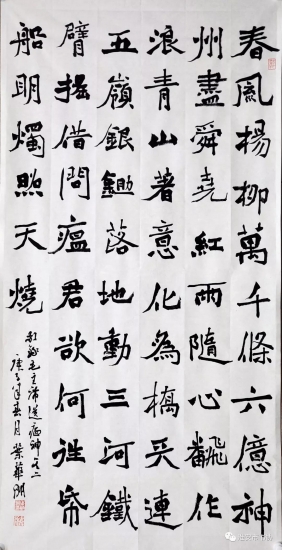 春風楊柳萬千條六億神
州盡舜堯紅雨隨心翻作
浪青山著意化為橋天連
五嶺銀鋤落地動三河鐵
臂搖借問瘟君欲何往帋
船明燭照天燒
毛主席送瘟神之二
庚子年春月葉華